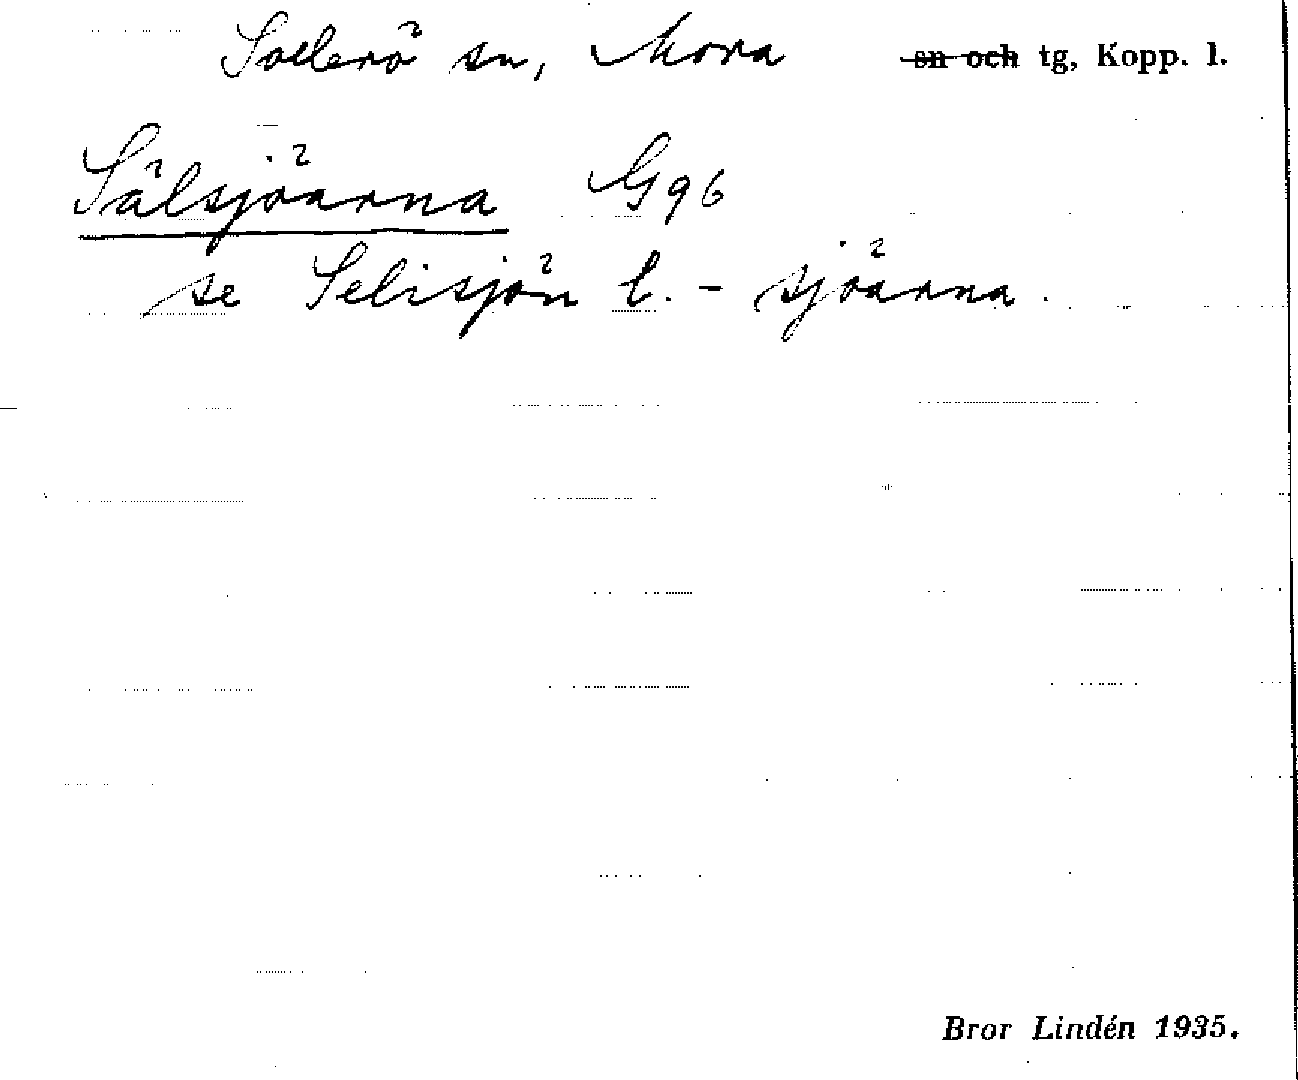 Sollerö sn, Mora sn och tg, Kopp. l.
Sälsjöarna G96
se Selisjön l. - sjöarna.
Bror Lindén 1935.